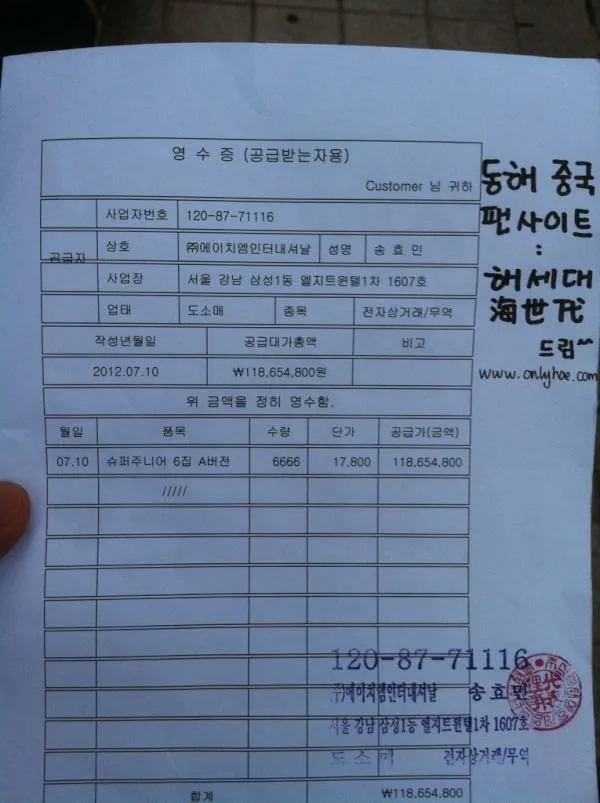 영 수 증 (공급받는자용)
Customer 님 귀하
공급자
사업자번호 120-87-71116
상호 ㈜에이치엠인터내셔날 성명 송 효 민
사업장 서울 강남 삼성1동 엘지트윈텔1차 1607호
업태 도소매 종목 전자상거래/무역
작성년월일 공급대가총액 비고
2012.07.10 ₩118,654,800원
위 금액을 정히 영수함.
월일 품목 수량 단가 공급가(금액)
07.10 슈퍼주니어 6집 A버전 6666 17,800 118,654,800
/////
합계 ₩118,654,800
동해 중국
팬사이트
:
해세대
海世代
드림^^
www.onlyhae.com
120-87-71116
(주)에이치엠인터내셔날 송효민
서울 강남 삼성1동 엘지트윈텔1차 1607호
도 소 매 전자상거래/무역